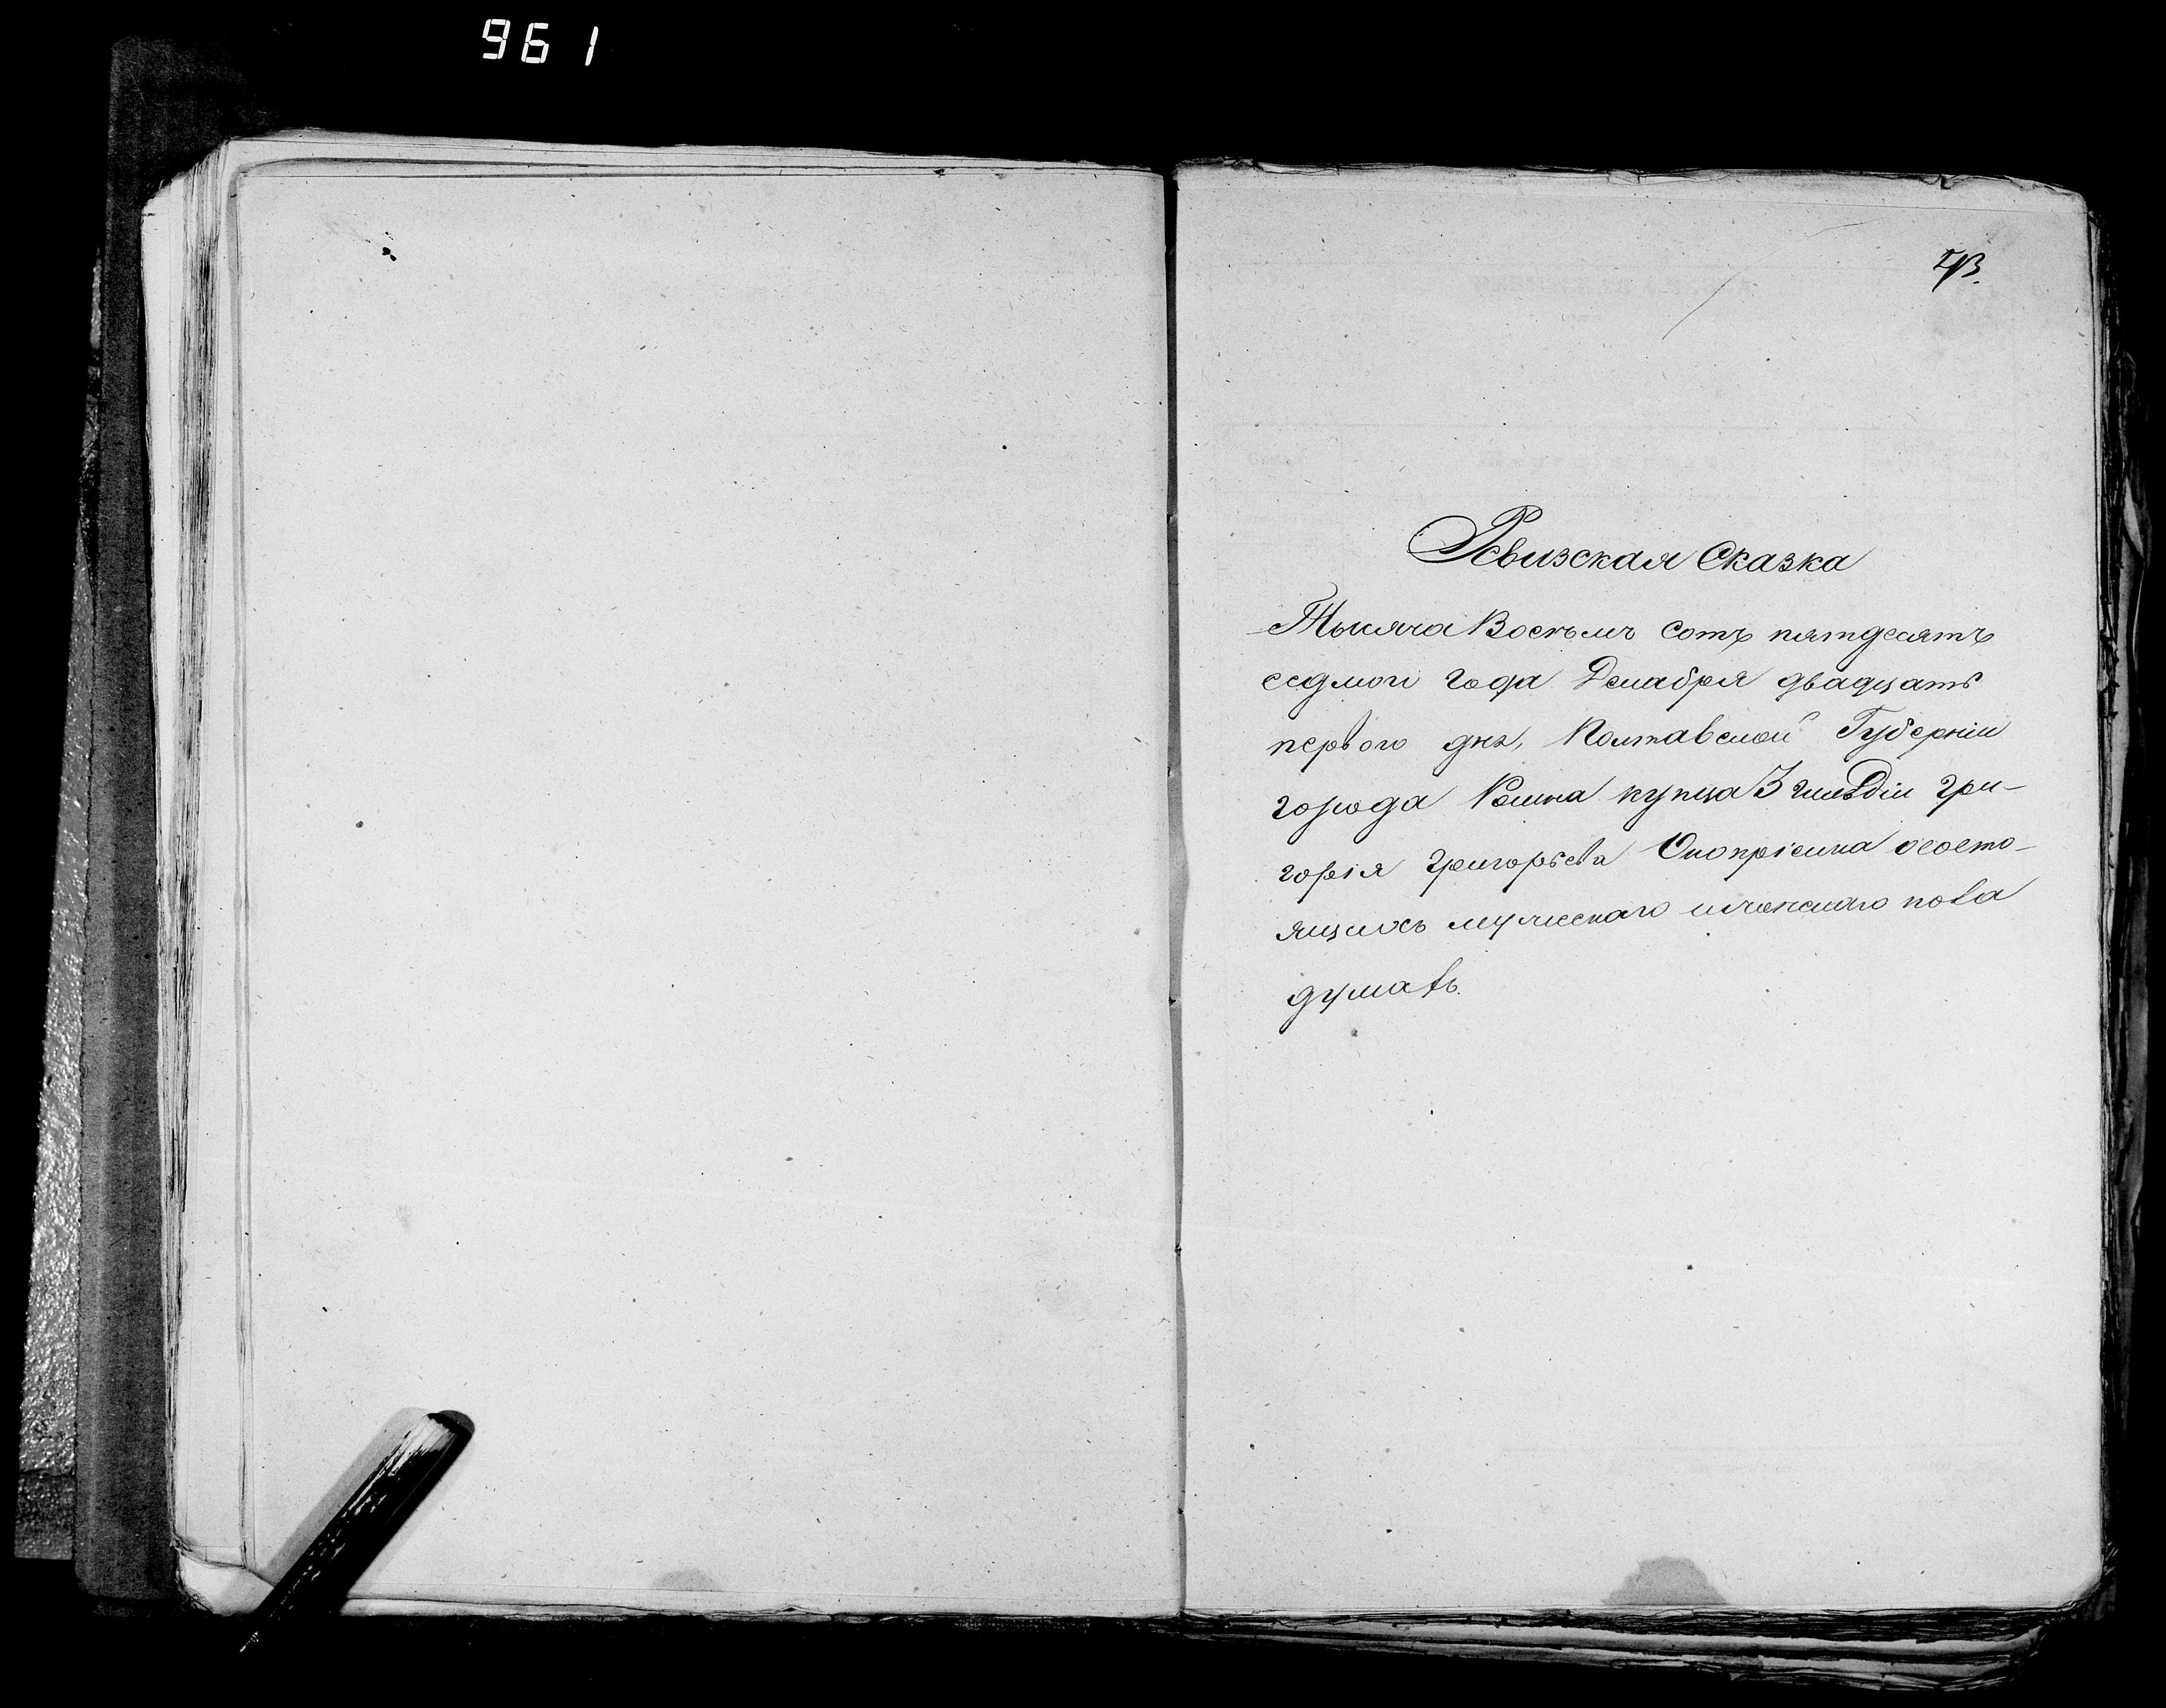 961
43.
Ревизская Сказка
Тысяча Восемъ сотъ пятдесятъ
седмои года Декабря двадцать
первого дня, Полтавской Губерніи
города Ромна купца 3 гильдіи Гри-
горія Григорьева о состо-
ящихъ мужескаго и женскаго пола
душахъ.